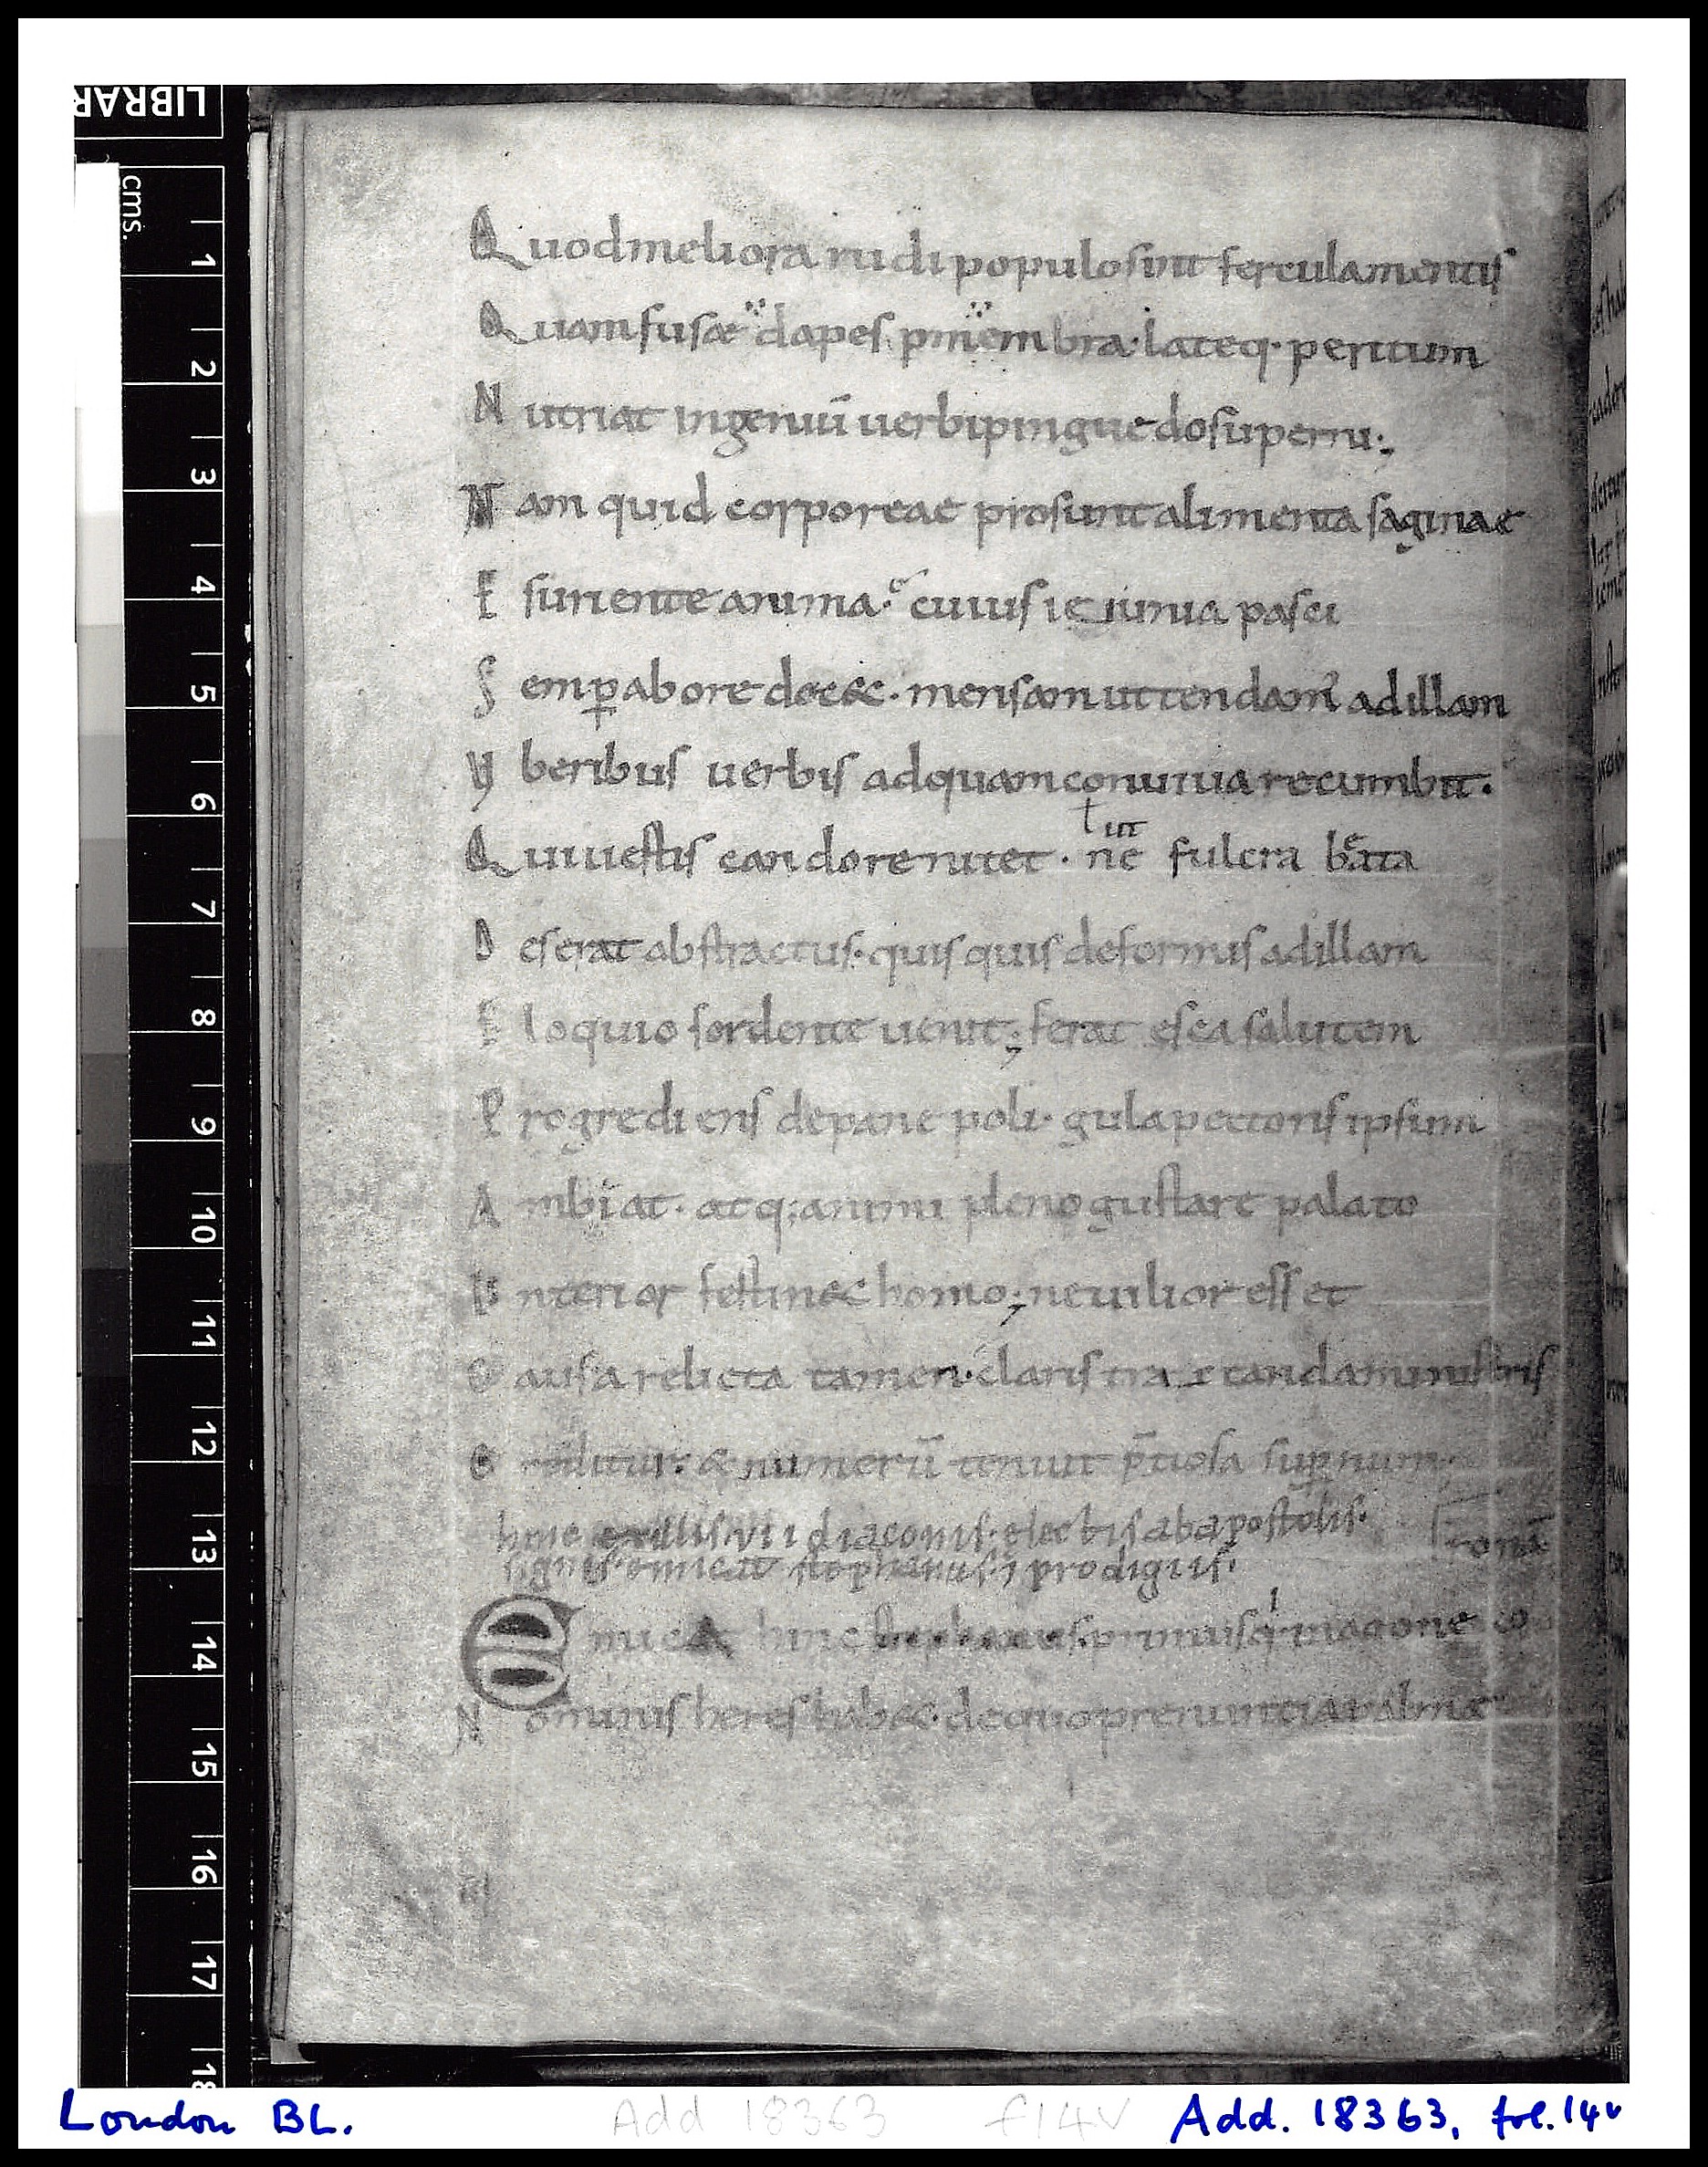 LIBRAR
cms.
1
2
3
4
5
6
7
8
9
10
11
12
13
14
15
16
17
18
Quod meliora rudi populo sint fercula mentis
Quam fusæ dapes p membra· lateq· peritum
Nutriat ingeniū uerbi pinguedo superni;
Nam quid corporeae prosunt alimenta saginae
Esuriente anima· cuius ieiunia pasci
Semp̱ ab ore docet· mensam ut tendam' ad illam
Vberibus uerbis ad quam conuiuia recumbit·
Qui uestis candore nitet· ne fulcra bata
ł ni
e
Deserat abstractus· quisquis deformis ad illam
Eloquio sordente uenit; ferat esca salutem
Progrediens de pane poli· gula pectoris ipsum
Ambiat· atq; animi pleno gustare palato
Interior festinet homo; ne uilior esset
Causa relicta tamen· claris tractanda ministris
Creditur· & numerū tenuit p̄tiosa sup̱num
hinc ex illis· vii diaconis· electis ab apostolis·
signis emicat stephanus· 7 prodigiis·
Emicat hinc stephanus· primusq· in agone co
ronā
Nominis heres habet· de quo prenuntiat almæ
London BL.
Add 18363 f14v
Add. 18363, fol. 14v